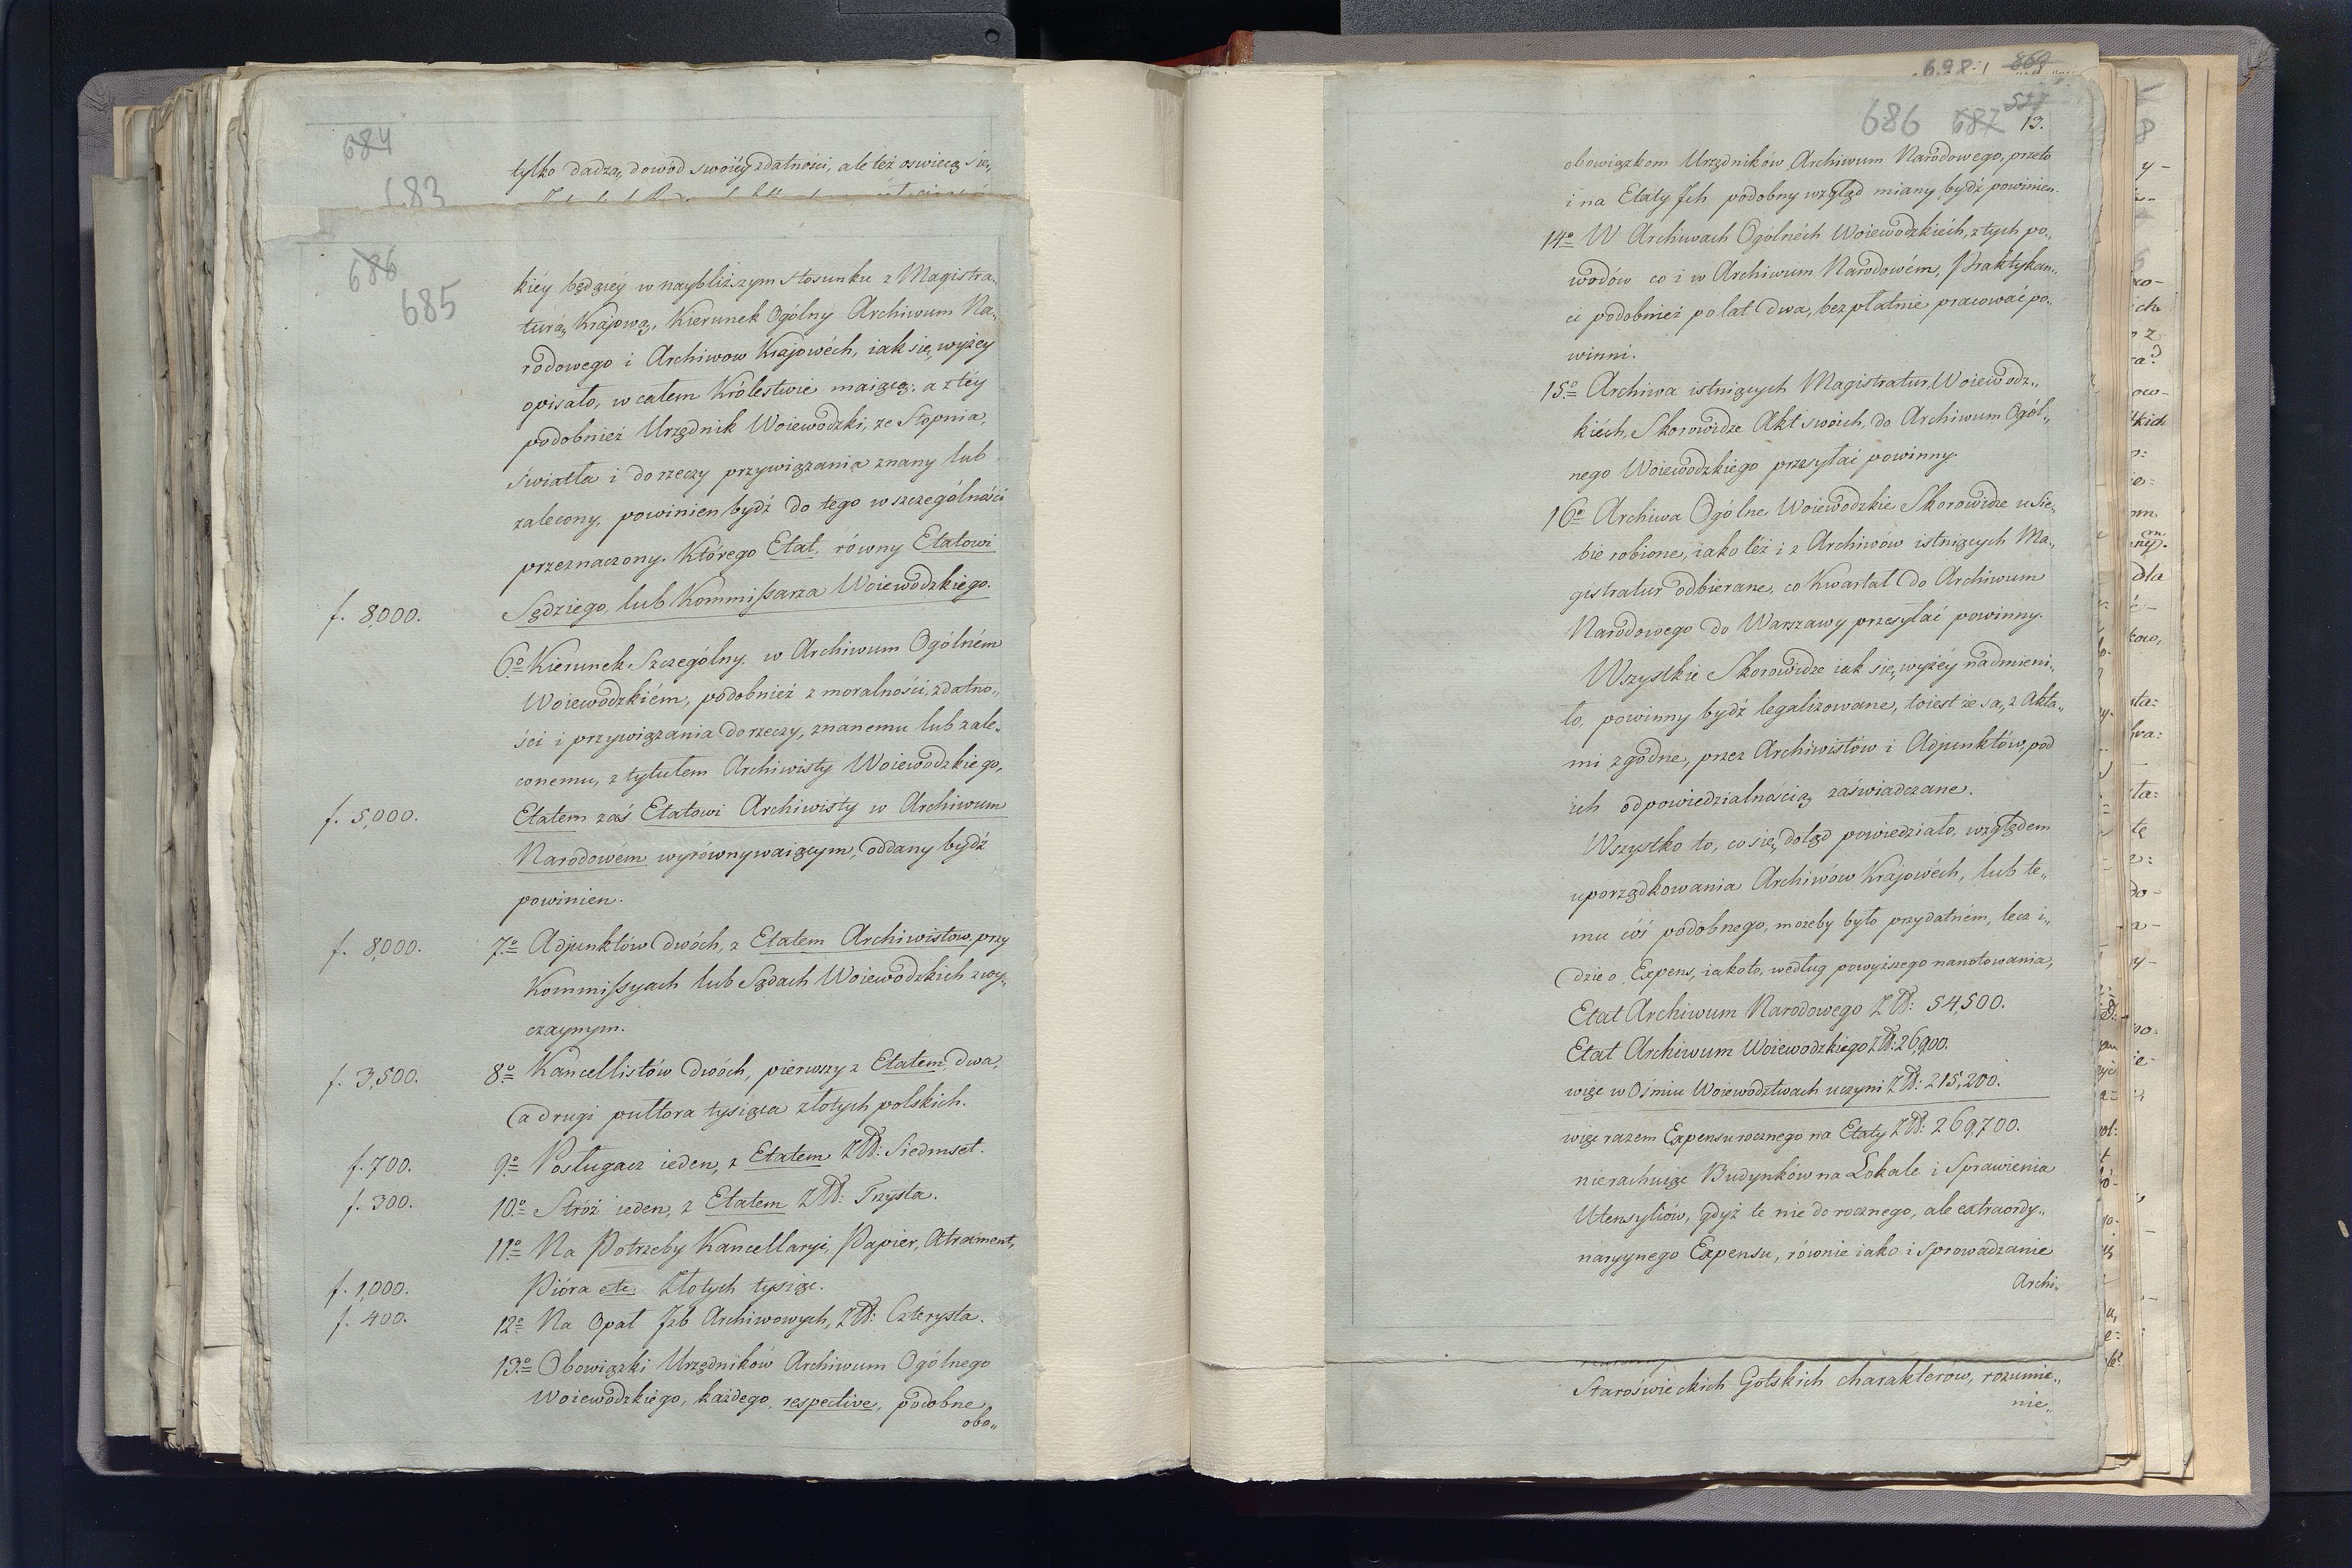 684
683
tylko dadzą, dowód swoiéy zdatności, ale też oswiecą się,
686
685
kiéy będącéy w naybliższym stosunku z Magistra„
turą Krajową, Kierunek Ogólny Archiwum Na„
rodowego i Archiwow Krajowéch, iak się wyżey
opisało, w całem Królestwie maiącą; a z téy
podobnież Urzędnik Woiewodzki, ze Stopnia,
światła i do rzeczy przywiązania znany lub
zalecony, powinien bydź do tego w szczególności
przeznaczony. Którego Etat, równy Etatowi
f. 8,000. Sędziego, lub Kommissarza Woiewodzkiego.
6º Kierunek Szczególny, w Archiwum Ogólném
Woiewodzkiém, podobnież z moralności, zdatno„
ści i przywiązania do rzeczy, znanemu lub zale„
conemu, z tytułem Archiwisty Woiewodzkiego,
f. 5,000. Etatem zaś Etatowi Archiwisty w Archiwum
Narodowém wyrównywaiącym, oddany bydź
powinien.
f. 8,000. 7º Adjunktów dwóch, z Etatem Archiwistow, przy
Kommissyach lub Sądach Woiewodzkich zwy„
czaynym.
f. 3,500. 8º Kancellistów dwóch, pierwszy z Etatem dwa,
a drugi pułtora tysiąca złotych polskich.
f. 700. 9º Posługacz ieden, z Etatem Złł: Siedmset.
f. 300. 10º Stróż ieden, z Etatem Złł: Trzysta.
11º Na Potrzeby Kancellaryi, Papier, Atrament,
f. 1,000. Pióra etc: Złotych tysiąc.
f. 400. 12º Na Opał Jzb Archiwowych, Złł: Czterysta.
13º Obowiązki Urzędników Archiwum Ogólnego
Woiewodzkiego, każdego respective, podobne
obo„
698.
869
686 687 527
13.
obowiązkom Urzędników Archiwum Narodowego, przeto
i na Etaty Jch podobny wzgląd miany bydź powinien.
14º W Archiwach Ogólnéch Woiewodzkiéch, z tych po„
wodów co i w Archiwum Narodowém, Praktykan„
ci podobnież po lat dwa, bezpłatnie pracować po„
winni.
15º Archiwa istniących Magistratur Woiewodz„
kiéch, Skorowidze Akt swoich, do Archiwum Ogól„
nego Woiewodzkiego przesyłać powinny.
16º Archiwa Ogólne Woiewodzkie Skorowidze u Sie„
bie robione, iako też i z Archiwów istniących Ma„
gistratur odbierane, co Kwartał do Archiwum
Narodowego do Warszawy przesyłać powinny.
Wszystkie Skorowidze iak się wyżéy nadmieni„
ło, powinny bydź legalizowane, toiest że są z Akta„
mi zgodne, przez Archiwistów i Adjunktów, pod
ich odpowiedzialnością zaświadczane.
Wszystko to, co się dotąd powiedziało, względem
uporządkowania Archiwów Krajowéch, lub te„
mu cóś podobnego, możeby było przydatném, lecz i„
dzie o Expens, iako to, według powyższego nanotowania,
Etat Archiwum Narodowego Złł: 54,500.
Etat Archiwum Woiewodzkiego Złł: 26,900.
więc w Ośmiu Woiewództwach uczyni Złł: 215,200.
więc razem Expensu rocznego na Etaty Złł: 269,700.
nierachuiąc Budynków na Lokale i Sprawienia
Utensyliów, gdyż te nie do rocznego, ale extraordy„
naryynego Expensu, równie iako i sprowadzanie
Archi„
Staroświeckich Gotskich charakterów, rozumie„
nie„